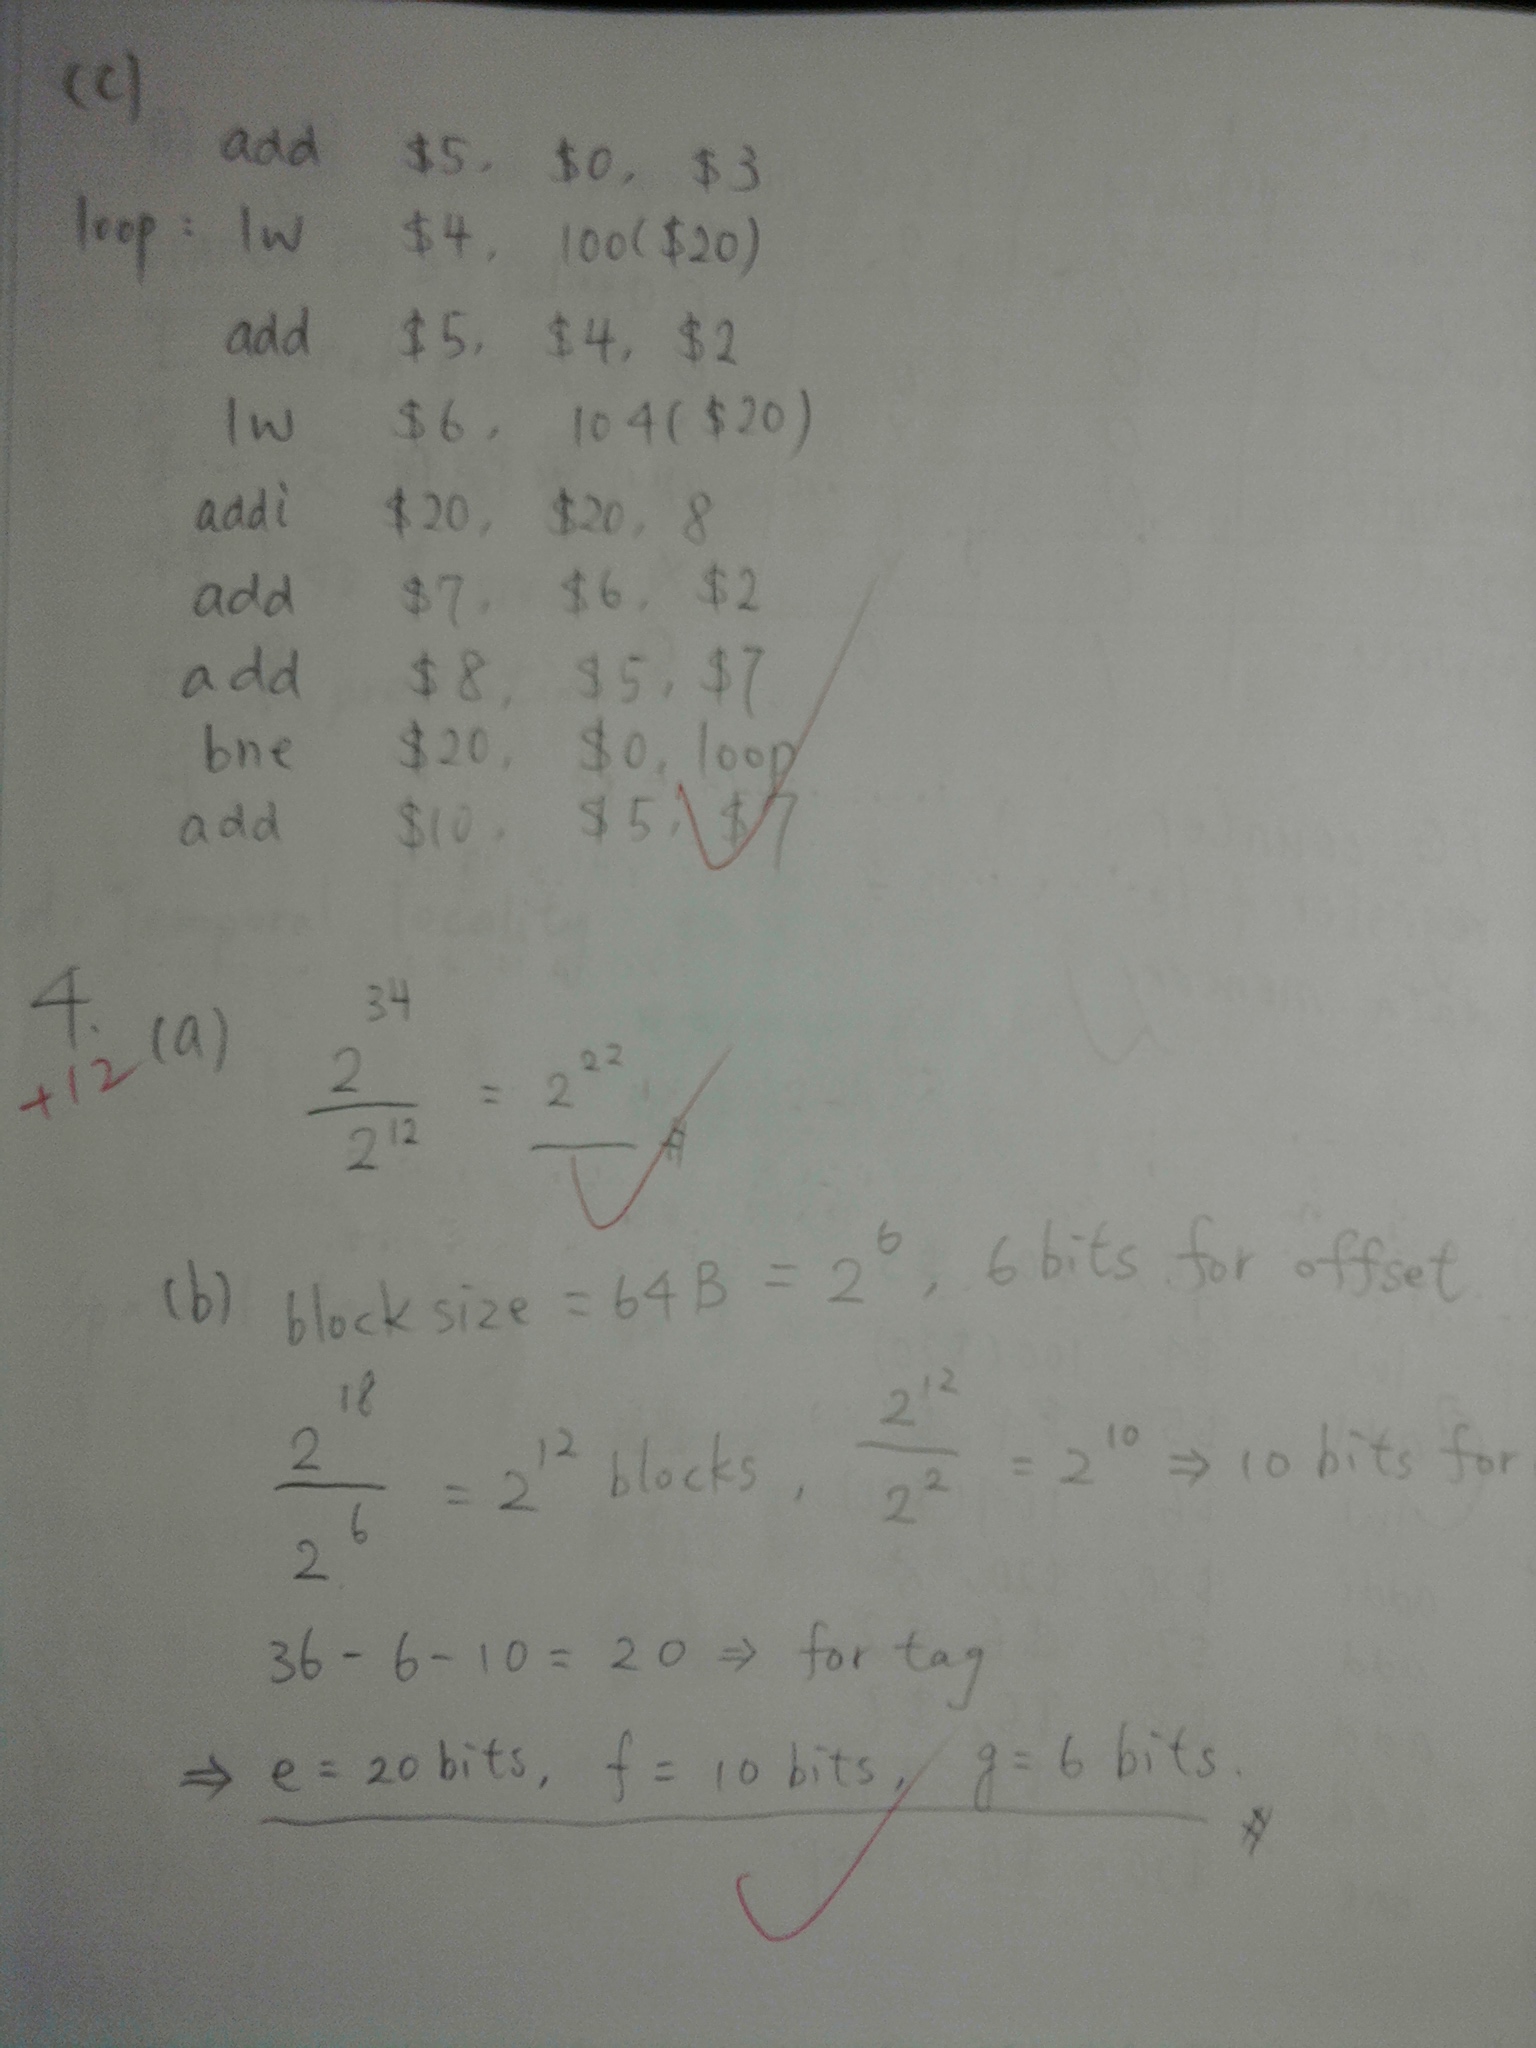 (c)
add $5, $0, $3
loop: lw $4, 100($20)
add $5, $4, $2
lw $6, 104($20)
addi $20, $20, 8
add $7, $6, $2
add $8, $5, $7
bne $20, $0, loop
add $10, $5, $7
4. (a) 2^34 / 2^12 = 2^22 #
+12
(b) block size = 64B = 2^6, 6 bits for offset
2^18 / 2^6 = 2^12 blocks, 2^12 / 2^2 = 2^10 ⇒ 10 bits for
36 - 6 - 10 = 20 ⇒ for tag
⇒ e = 20 bits, f = 10 bits, g = 6 bits. #